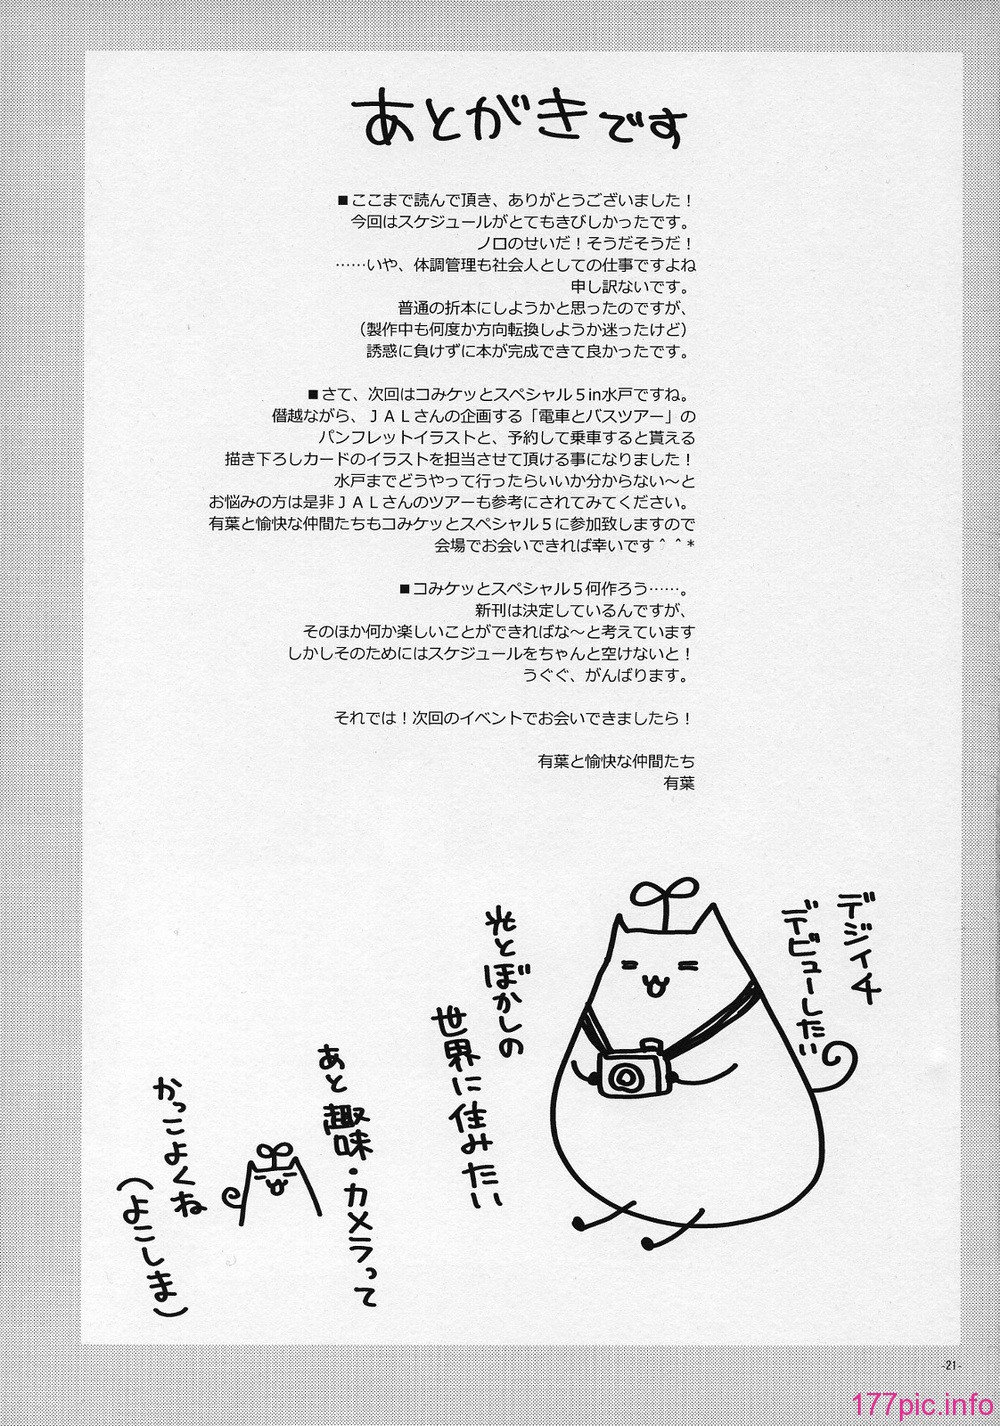 あとがきです
■ここまで読んで頂き、ありがとうございました！
今回はスケジュールがとてもきびしかったです。
ノロのせいだ！そうだそうだ！
……いや、体調管理も社会人としての仕事ですよね
申し訳ないです。
普通の折本にしようかと思ったのですが、
（製作中も何度か方向転換しようか迷ったけど）
誘惑に負けずに本が完成できて良かったです。
■さて、次回はコみケッとスペシャル５in水戸ですね。
僭越ながら、ＪＡＬさんの企画する「電車とバスツアー」の
パンフレットイラストと、予約して乗車すると貰える
描き下ろしカードのイラストを担当させて頂ける事になりました！
水戸までどうやって行ったらいいか分からない～と
お悩みの方は是非ＪＡＬさんのツアーも参考にされてみてください。
有葉と愉快な仲間たちもコみケッとスペシャル５に参加致しますので
会場でお会いできれば幸いです＾＾*
■コみケッとスペシャル５何作ろう……。
新刊は決定しているんですが、
そのほか何か楽しいことができればな～と考えています
しかしそのためにはスケジュールをちゃんと空けないと！
うぐぐ、がんばります。
それでは！次回のイベントでお会いできましたら！
有葉と愉快な仲間たち
有葉
デジイチ
デビューしたい
光とぼかしの
世界に住みたい
あと趣味・カメラって
かっこよくね
（よこしま）
-21-
177pic.info